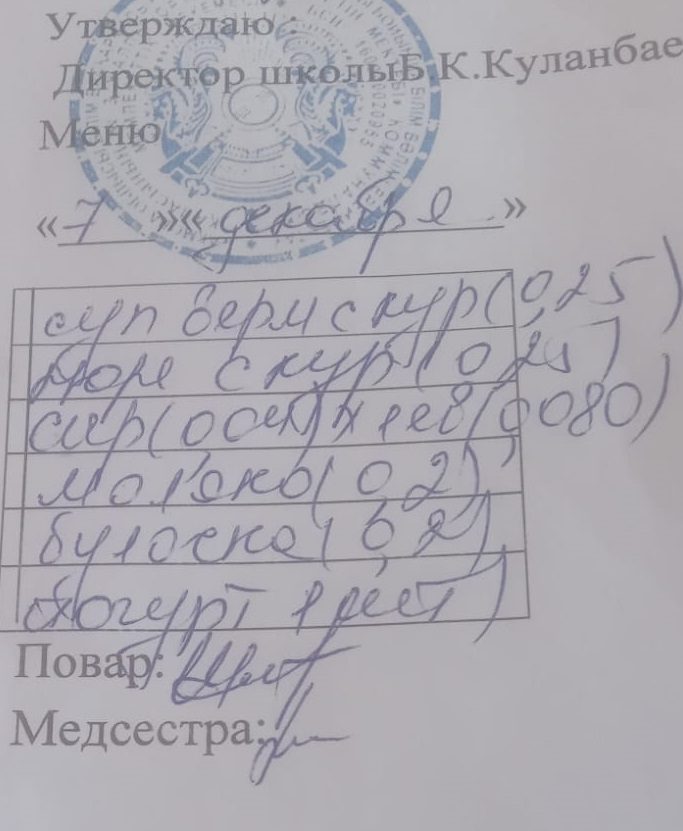 Утверждаю :
Директор школыБ.К.Куланбае
Меню
«7»«декабря»
суп верм с кур(0,25)
пюре с кур(0,25)
сыр( хлеб(0,080)
молоко(0,2)
булочка(0,2)
йогурт 1 шт)
Повар:
Медсестра: